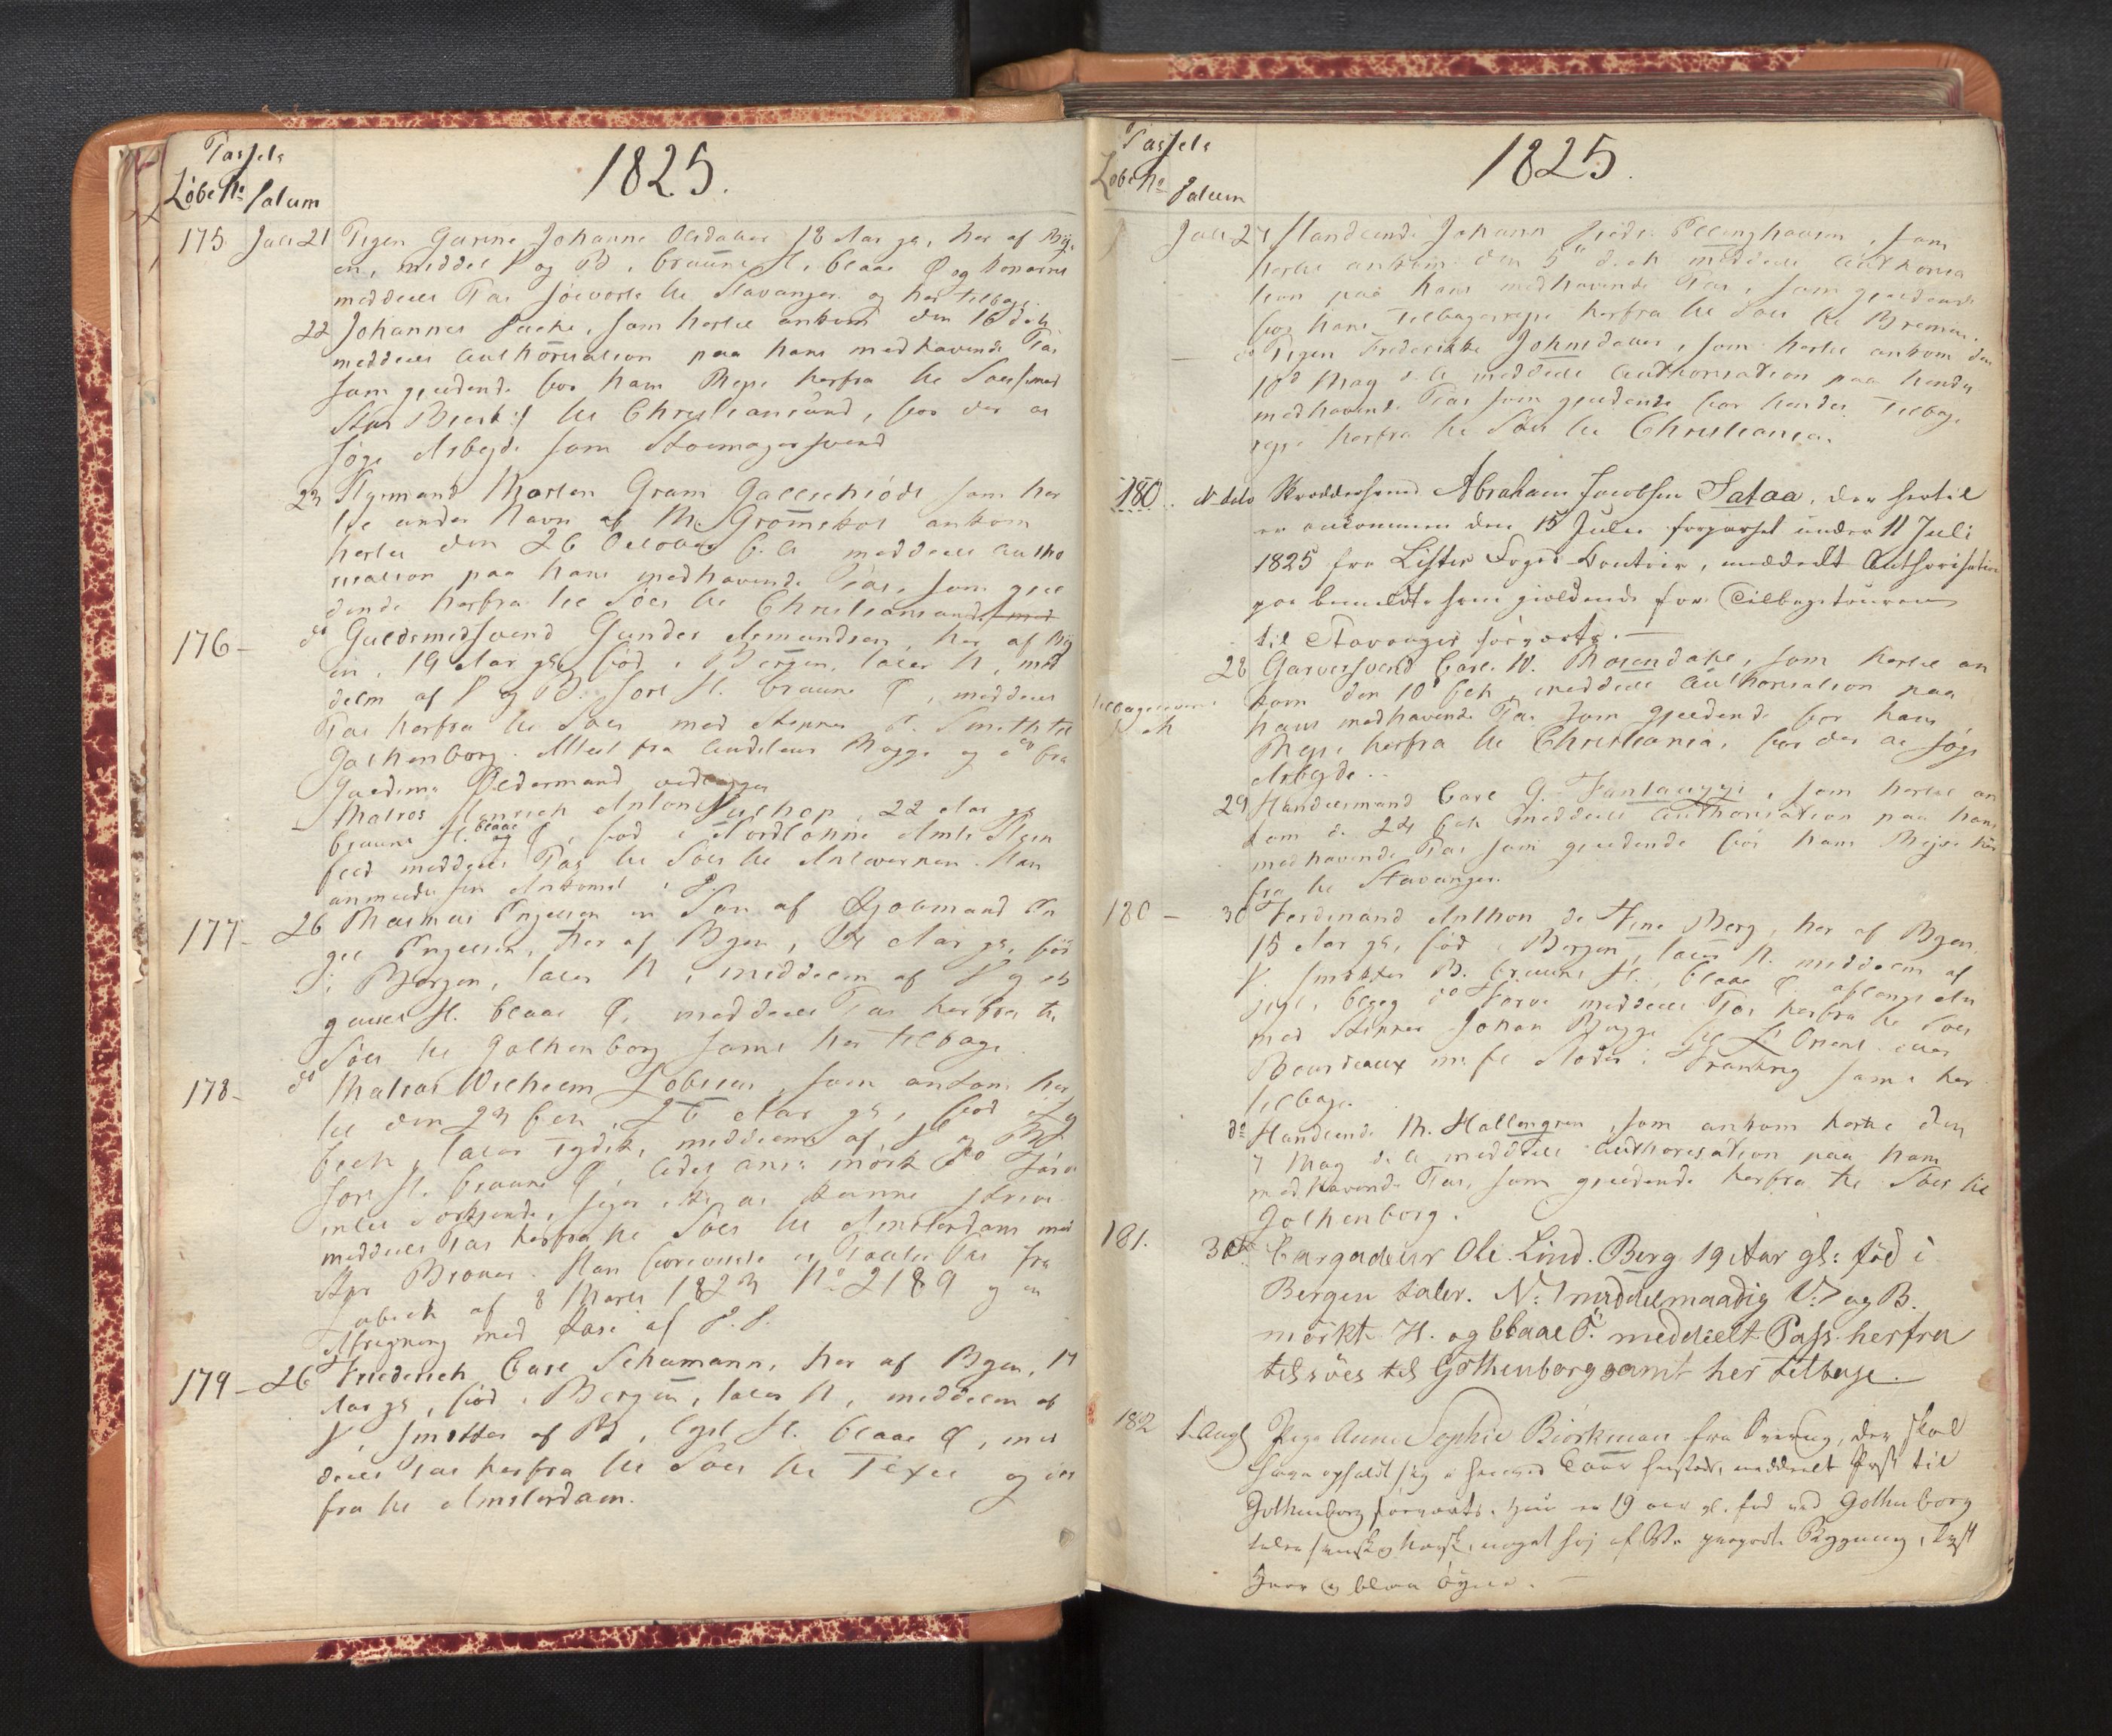 Passets
Löbe No Datum
1825.
175 Juli 21 Pigen Gurine Johanne Olsdatter 18 Aar gl, her af Bÿ,
en, middel V og B, bruune H, blaae Ö og
meddeelt Pas söeværts til Stavanger og her tilbage.
22 Johannes som hertil ankom den 16 d.
meddeelt Authorisation paa hans medhavende Pas
som gieldende for hans Reyse herfra til Söes med
til Christiansund, for der at
söge Arbeyde som Skomagersvend
23 Styrmand Morten Gram Gallschiödt som her
til under Navn af M. Gromskov ankom
hertil den 26 October f. A. meddeelt Autho
risation paa hans medhavende Pas, som giel
dende herfra til Söes til Christiansand
176 - do Guldsmedsvend Gunder Asmundsen, her af Bÿ
en, 19 Aar gl, föd i Bergen, taler N, mid
delm af V og B. sort H. bruune Ö, meddeelt
Pas herfra til Söes med Skipper P. Smith til
Gothenborg. Attest fra Andreas Bagge og do fra
Guldsm: Oldermand vedlegges
- Matros Henrich Anton 22 Aar gl
bruune H. og blaae Ö, föd i
feld meddeelt Pas til Söes til Antwerpen. Han
anmeldte sin Ankomst
177 - 26 Rasmus Engelsen en Sön af Engel
Engelsen, her af Byen, Aar gl, föd
i Bergen, taler N, middelm af V og B
guult H. blaae Ö, meddeelt Pas herfra til
Söes til Gothenborg samt her tilbage.
178 - do Matros Wilhelm som ankom her
til den 23 26 Aar gl, föd i Ly
beck, taler tydsk, middelm af V og B
sort H. bruune Ö,
sige ikke at kunne skrive
meddeelt Pas herfra til Söes til Amsterdam med
Skpr Brouer. Han foreviste et Pas fra
Lybeck af 8 Marts 1823 No 2189 og en
Afregning med
179 - 26 Friederich Carl Schumann, her af Byen, 17
Aar gl, föd i Bergen, taler N, middelm af
V, smekker af B, lyst H. blaae Ö, med
deelt Pas herfra til Söes til Texel og der
fra til Amsterdam.
Passets
Löbe No Datum
1825.
Juli 27 Handlende Johann Ellinghausen, som
hertil ankom den 5te d. M. meddeelt Authorisa
tion paa hans medhavende Pas, som gieldende
for hans Tilbagereyse herfra til Söes til Bremen.
- do Pigen Frederikke Johnsdatter, som hertil ankom den
10d May d. A. meddeelt Authorisation paa hendes
medhavende Pas som gieldende for hendes Tilbage
reyse herfra til Söes til Christiania.
180. do dito Skræddersvend Abraham Jacobsen Sataa, der hertil
er ankommen den 15 Julii forpasset under 11 Juli
1825 fra Lister Foged Contoir, meddeelt Authorisation
paa bemeldte som gieldende for Tilbagetouren
til Stavanger söeværts. -
28 Garversvend Carl W. Rosendahl, som hertil an
kom den 10d meddeelt Authorisation paa
hans medhavende Pas som gieldende for hans
Reyse herfra til Christiania, for der at söge
Arbeyde..
29 Handelsmand Carl G. Fantauzzi, som hertil an
kom d. 24 meddeelt Authorisation paa hans
medhavende Pas som gieldende for hans Reyse her
fra til Stavanger.
180 - 30 Ferdinand Anthon de Fine Berg, her af Byen
15 Aar gl, föd i Bergen, taler N. middelm af
V. smekker B. bruune H., blaae Ö. aflangt An
sigt, bleeg do Farve meddeelt Pas herfra til Söes
med Skipper Johan Bagge til L Orient eller
Bourdeaux m: fl: Stæder i Frankrig samt her
tilbage.
do Handlende M. Hallengren, som ankom hertil den
7 May d. A. meddeelt Authorisation paa hans
medhavende Pas, som gieldende herfra til Söes til
Gothenborg.
181. 30 Cargadeur Ole Lind Berg 19 Aar gl: föd i
Bergen taler. N: middelmaadig V: og B.
mörkt H. og blaae Ö. meddeelt Pass herfra
til söes til Gothenborg samt her tilbage.
182 1 Augt Pige Anne Sophie Biörkman fra Sverrig, der skal
have opholdt sig i meddeelt Pass til
Gothenborg söeværts. Hun er 19 aar gl. föd ved Gothenborg
taler svensk og norsk, noget höj af Væxt Bygning, lyst
Haar og blaa öyne. -